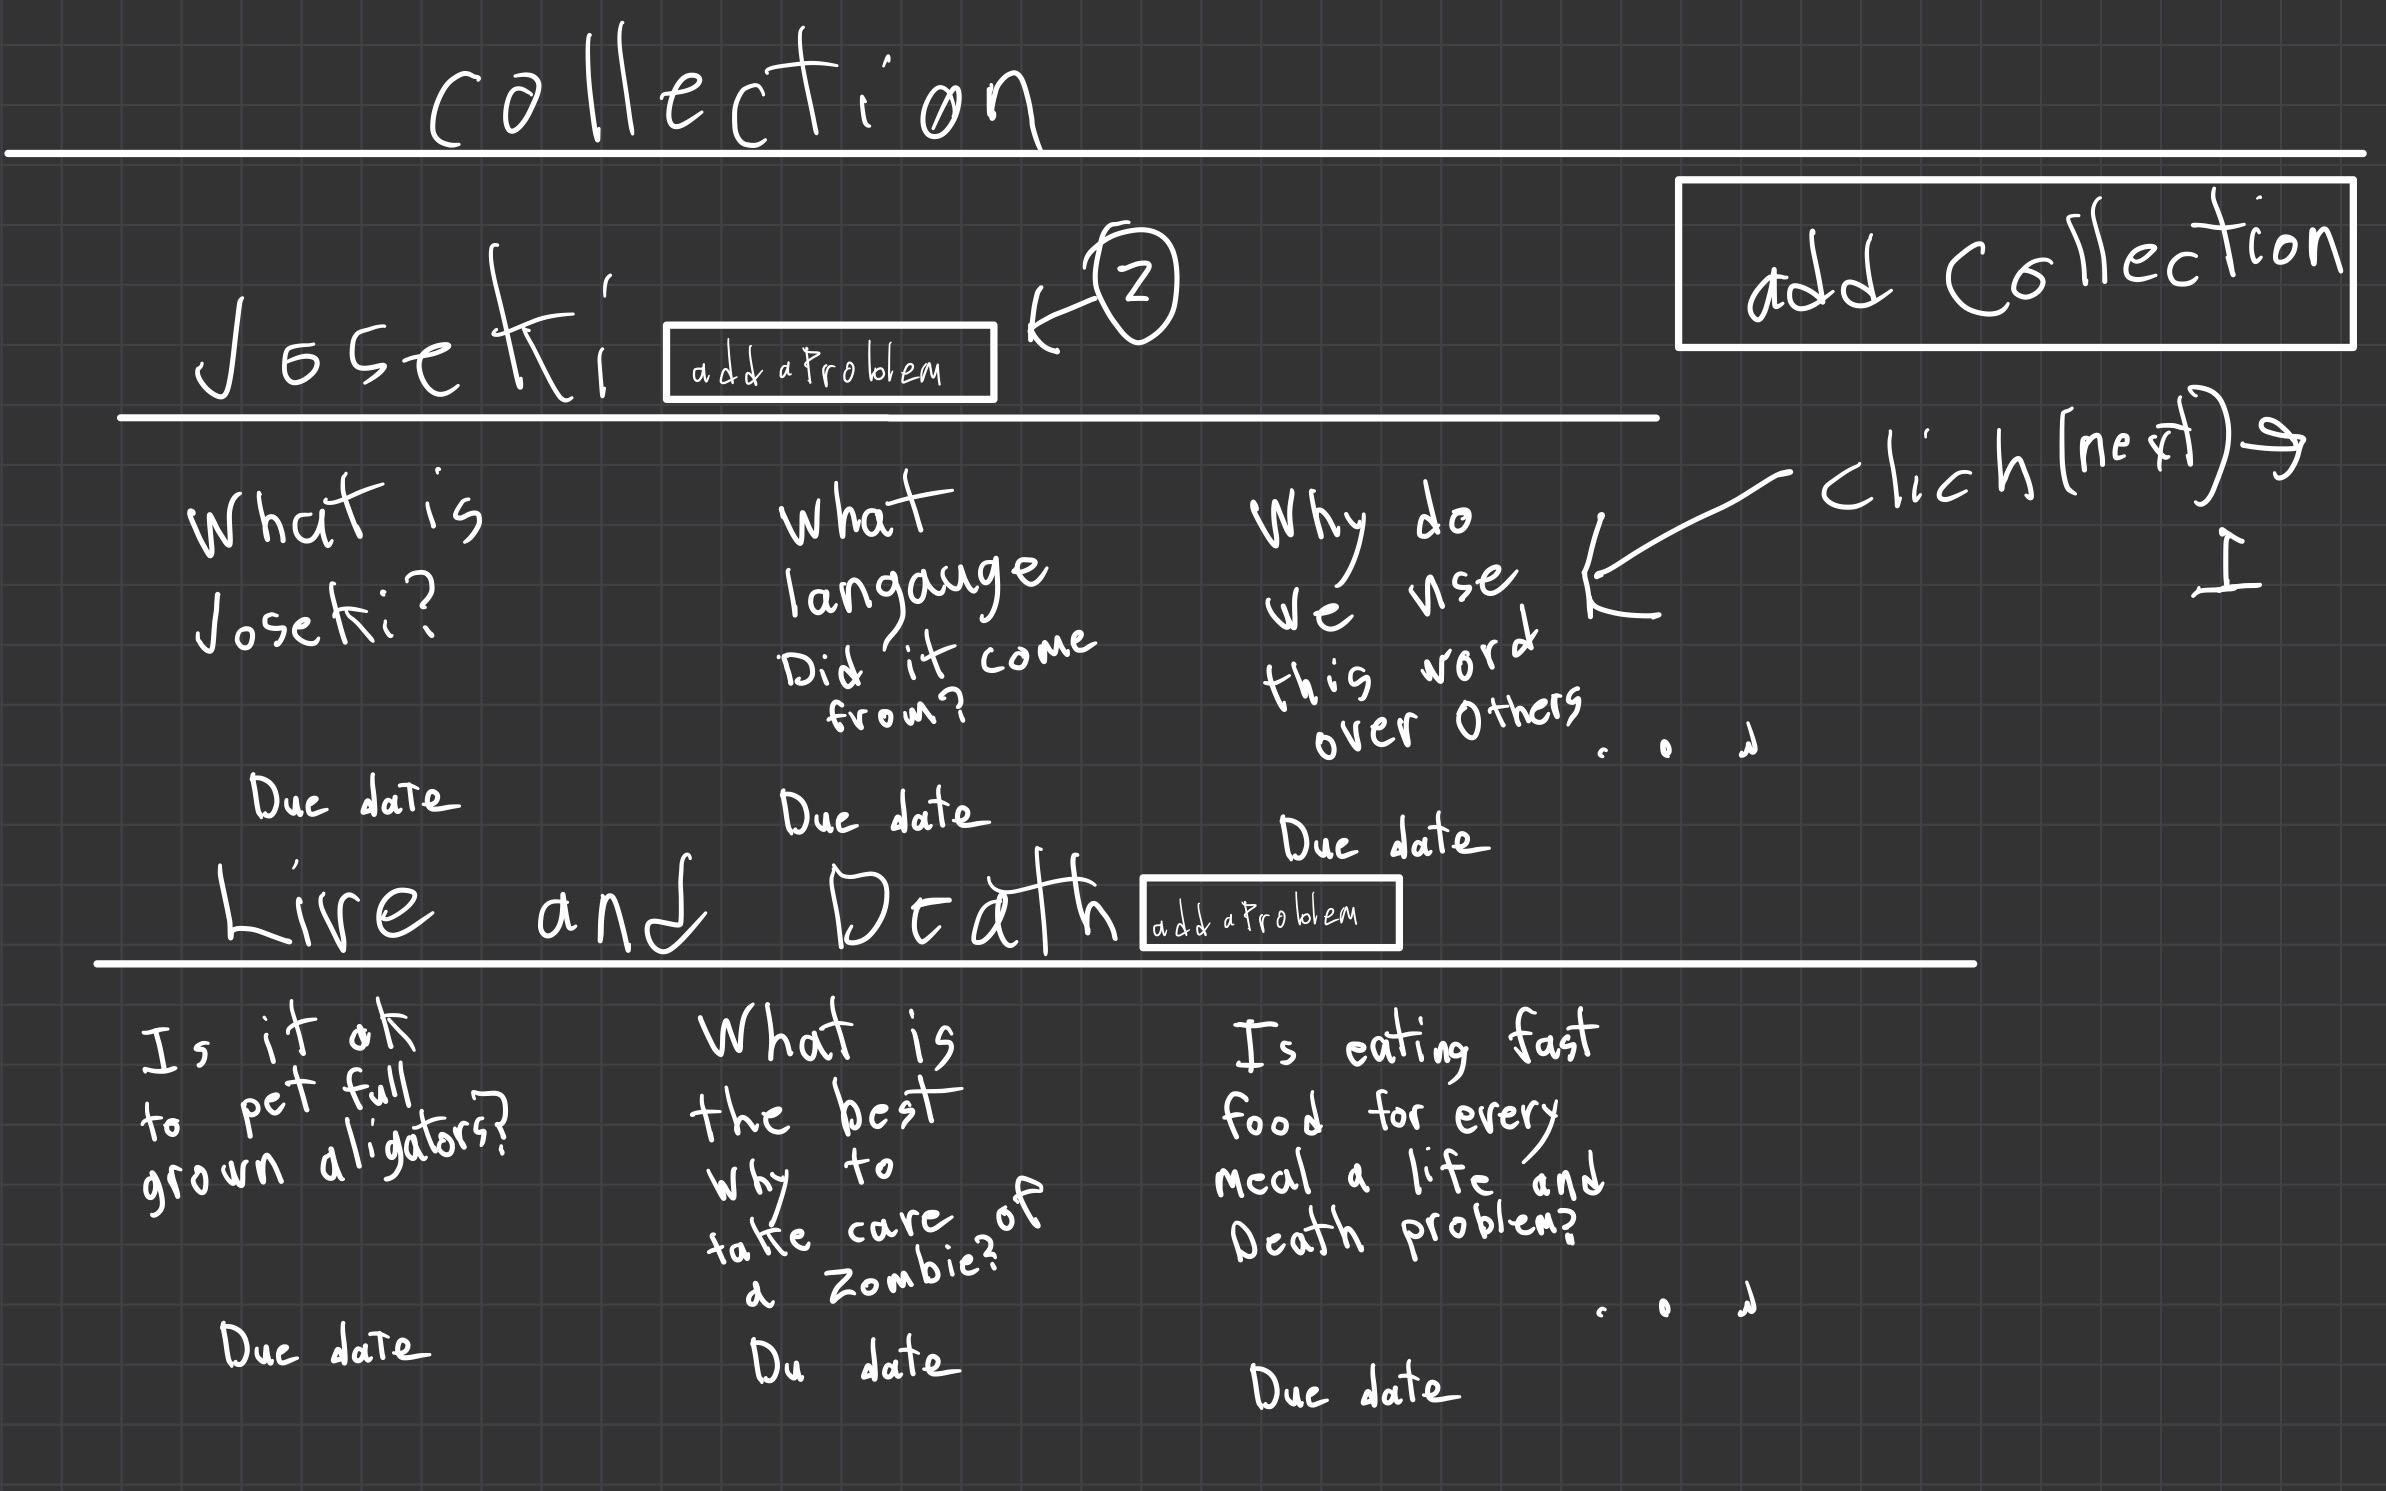 collection
add Collection
Joseki
add a Problem
2
click (next)
I
What is
Joseki?
Due date
What
langauge
Did it come
from?
Due date
Why do
we use
this word
over others
...
Due date
Live and Death
add a Problem
Is it ok
to pet full
grown aligators?
Due date
What is
the best
why to
take care of
a Zombie?
Du date
Is eating fast
food for every
meal a life and
Death problem?
...
Due date